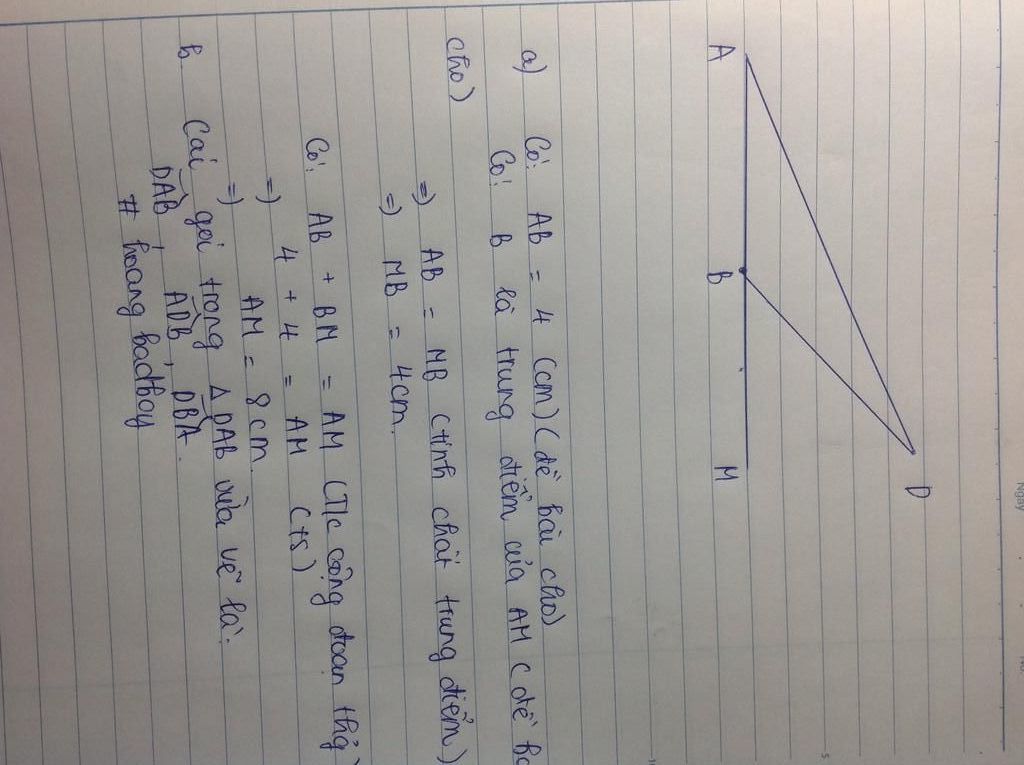 D
A B M
a) Có: AB = 4 (cm) (đề bài cho)
Có: B là trung điểm của AM (đề
cho)
=) AB = MB (tính chất trung điểm)
=) MB = 4cm.
Có: AB + BM = AM (T/c cộng đoạn
=) 4 + 4 = AM (ts)
=) AM = 8 cm.
b Cái góc trong Δ DAB vừa vẽ là:
DAB, ADB, DBA.
# hoang badboy
Ngày